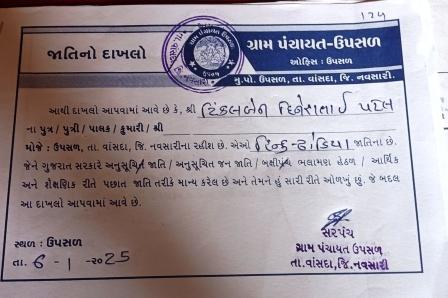 124
જાતિનો દાખલો
ગ્રામ પંચાયત-ઉપસળ
ઓફિસ : ઉપસળ
મુ.પો. ઉપસળ, તા. વાંસદા, જિ. નવસારી.
આથી દાખલો આપવામાં આવે છે કે, શ્રી દિનેશભાઈ પટેલ
ના પુત્ર / પુત્રી / પાલક / કુમારી / શ્રી
મોજે : ઉપસળ, તા. વાંસદા, જિ. નવસારીના રહીશ છે. એઓ હિન્દુ-ઢોડિયા જાતિના છે.
જેને ગુજરાત સરકારે અનુસૂચિત જાતિ / અનુસૂચિત જન જાતિ / બક્ષીપંચ ભલામણ હેઠળ / આર્થિક
અને શૈક્ષણિક રીતે પછાત જાતિ તરીકે માન્ય કરેલ છે અને તેમને હું સારી રીતે ઓળખું છું. જે બદલ
આ દાખલો આપવામાં આવે છે.
સ્થળ : ઉપસળ
તા. 6 - 1 -૨૦25
સરપંચ
ગ્રામ પંચાયત ઉપસળ
તા.વાંસદા,જિ.નવસારી